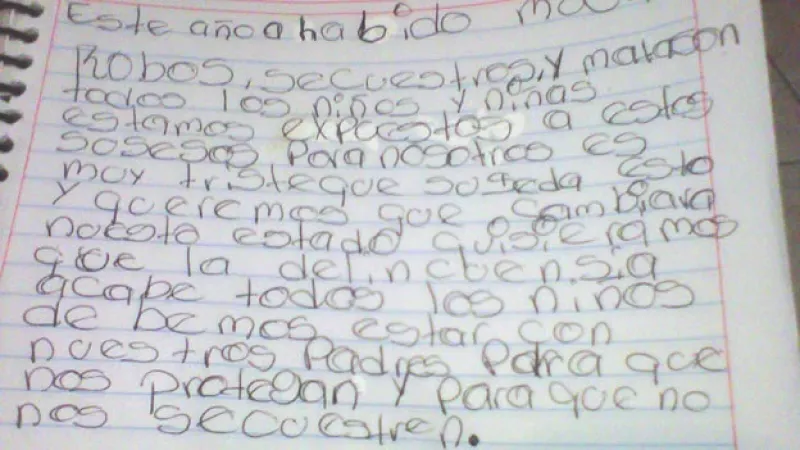 Este año a habido
Robos, secuestros, y matason
todos los niños y niñas
estamos expuestos a estos
sosesos para nosotros es
muy triste que suseda esto
y queremos que cambiara
nuesto estado quisieramos
que la delincbensia
acabe todos los niños
de bemos estar con
nuestros padres para que
nos protegan y para que no
nos secuestren.